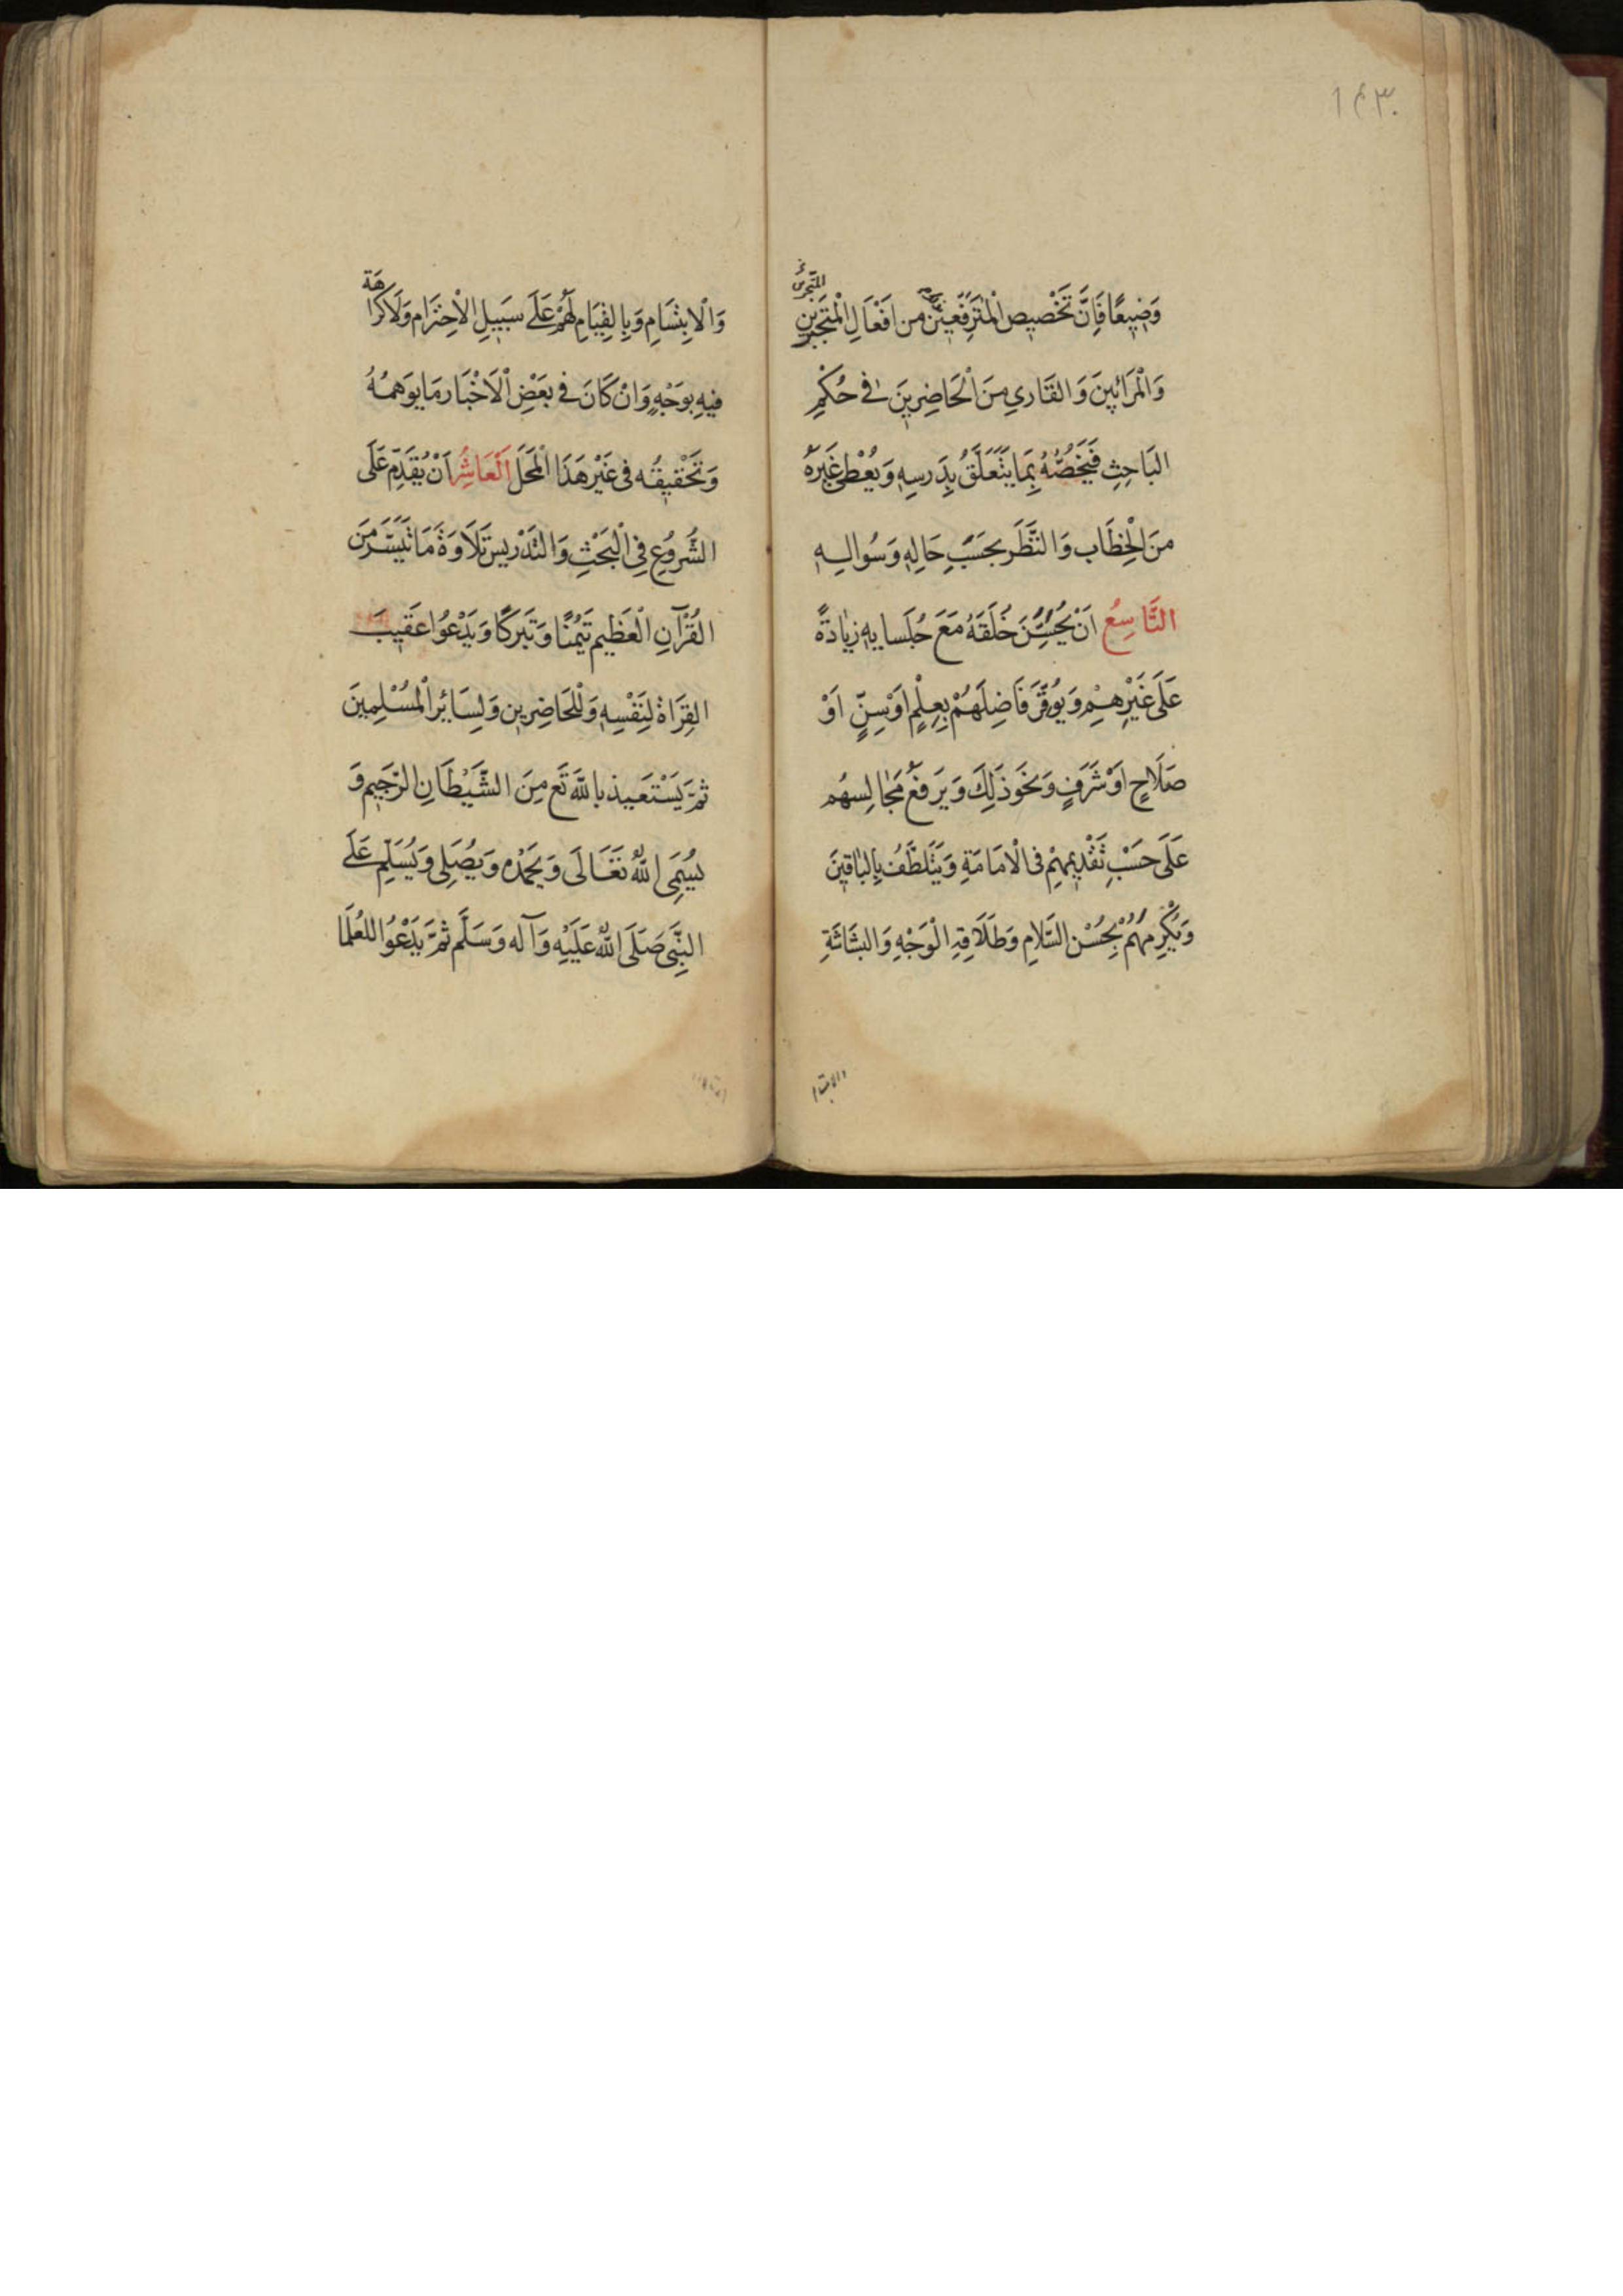 ١٤٣
وَضِيعًا فَاِنَّ تَخْصِيصَ الْمُتَرَفِّعِينَ مِن اَفْعَالِ الْمُتَجَبِّرِينَ
وَالْمُرَائِينَ وَالقَارِي مِنَ الْحَاضِرِينَ فِي حُكْمِ
البَاحِثِ فَيَخُصُّهُ بِمَا يَتَعَلَّقُ بِدَرسِهِ وَيُعْطِي غَيْرَهُ
مِنَ الْخِطَابِ وَالنَّظَر بحَسَبِ حَالِهِ وَسُوالِهِ
التَّاسِعُ اَنْ يُحَسِّنَ خُلْقَهُ مَعَ جُلَسايِهِ زِيَادَةً
عَلَى غَيْرِهِمْ وَيُوَقِّرَ فَاضِلَهُمْ بِعِلْمٍ اَوْسِنٍّ اَوْ
صَلَاحٍ اَوْ شَرَفٍ وَنَحْوَ ذَلِكَ وَيَرفَعُ مَجَالِسهُم
عَلَى حَسْبِ تَقْدِيمِهِمْ فى الْامَامَةِ وَيَتَلَطَّفُ بِالبَاقِينَ
وَيُكْرِمهُمْ بِحُسْنِ السَّلَامِ وَطَلَاقَةِ الْوَجْهِ وَالبَشَاشَةِ
والابتسا
وَالْابِتْسَامِ وَبِالقِيَامِ لَهُمْ عَلَى سَبِيلِ الْاحِتْرَامِ وَلَا كَرَاهَة
فِيهِ بِوَجْهٍ وَانْ كَانَ فى بَعْضِ الْاَخْبَار مَا يُوهِمُهُ
وَتَحْقِيقُه فى غَيْر هَذَا الْمَحَل اَلْعَاشِرُ اَنْ يُقَدِّمَ عَلَى
الشُّرُوعِ فِي الْبَحْثِ وَالتَّدْرِيس تَلَاوَةَ مَا تَيَسَّرَ مِنَ
القُرْآنِ الْعَظِيم تَيَمُّنًا وَتَبَركًا وَيَدْعُوا عَقِيبَ
القِرَاة لِنَفْسِهِ وَلْلحَاضِرِين وَلِسَائِر الْمُسْلِمِينَ
ثُمَّ يَسْتَعِيذ بِاللَّهِ تَعَ مِنَ الشَّيْطَانِ الرَّجِيم وَ
يُسَمِّى اللَّهَ تَعَالَى وَيَحْمَدُه وَيُصَلِى وَيُسَلِّم عَلَى
النَّبِىِّ صَلَى اللَّهُ عَلَيْهِ وَآله وَسَلَّم ثُمَّ يَدْعُوا للعُلَمَا